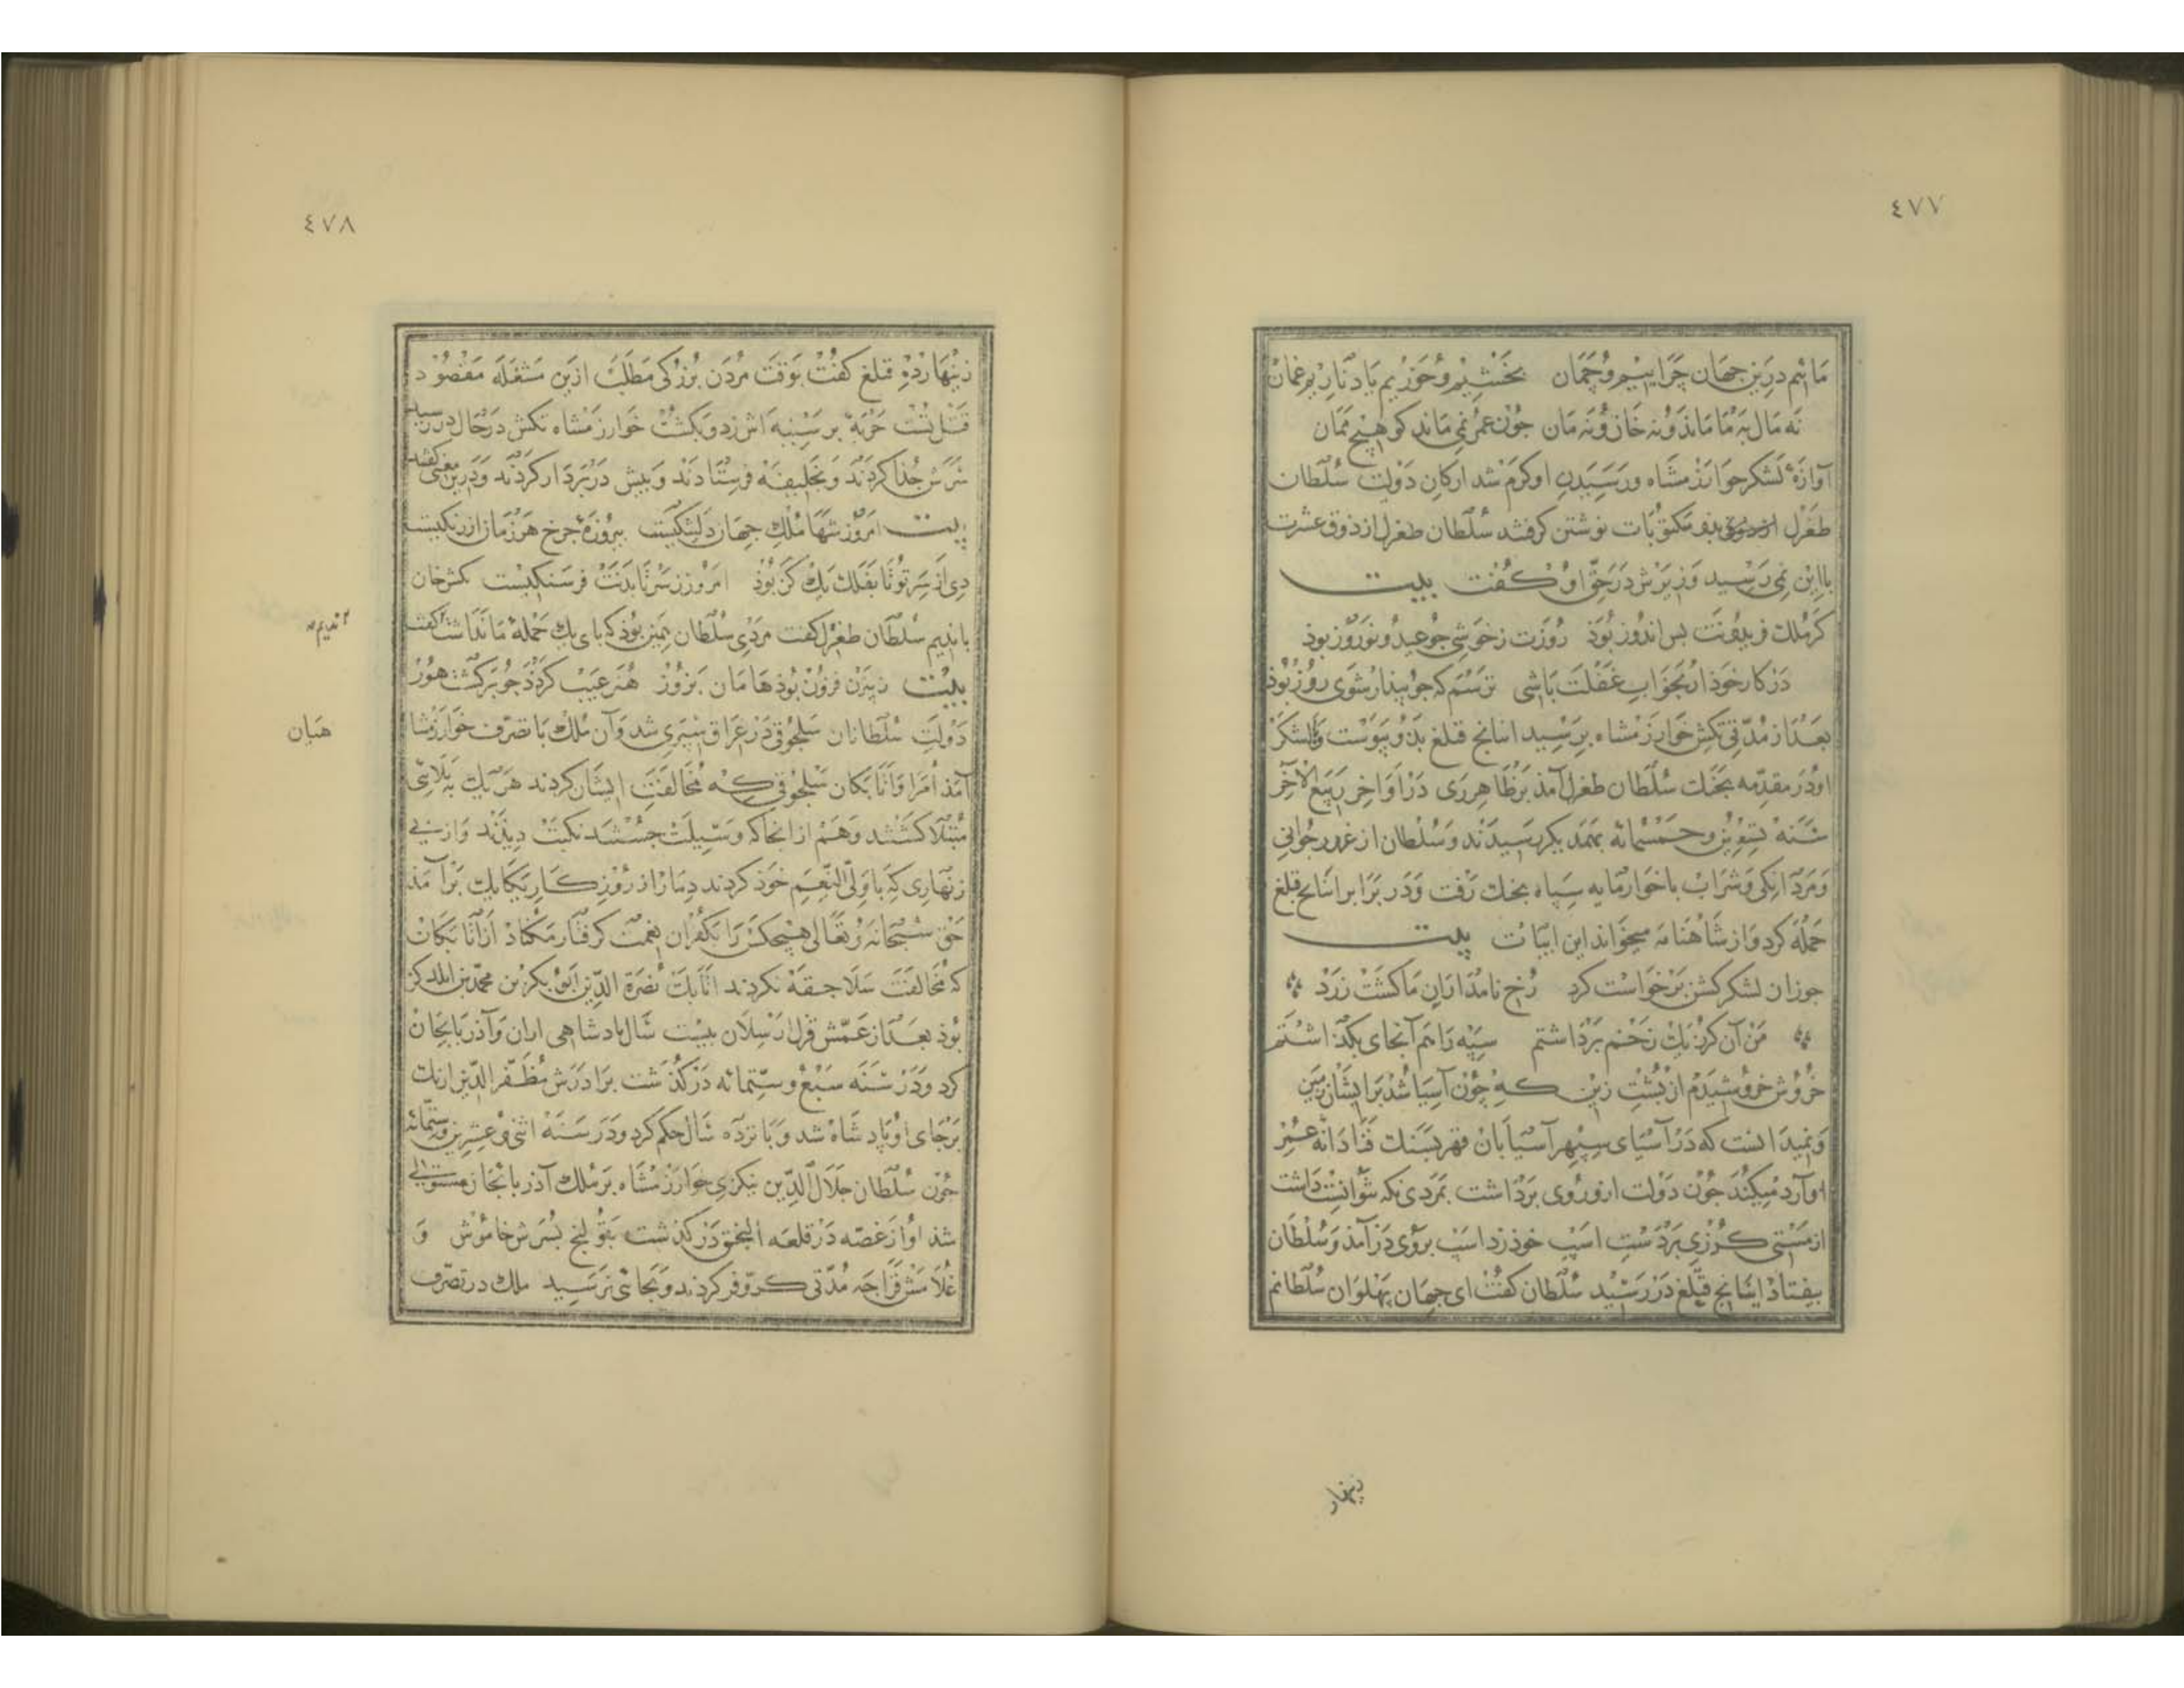 ٤٧٧
مائیم درین جهان چرا بیم و چمان بخشیم و خوریم یاد ناریم غمان
نه مال بما ماند و نه خان و نه مان جون عمر نمی ماند کو هیچ ممان
آوازهٔ لشکر خوارزمشاه و رسیدن او کرم شد ارکان دولت سلطان
طغرل بدو مکتوبات نوشتن کرفتند سلطان طغرل از ذوق عشرت
باین نمی رسید وزیرش در حق او کفت بیت
کر ملک فریدونت بس اندوز بوذ روزت ز خوشی جو عید و نوروز بوذ
در کار خوذ ار بخواب غفلت باشی ترسم که جو بیدار شوی روز بوذ
بعد از مدتی تکش خوارزمشاه برسید اینانج قتلغ بدو پیوست و با لشکر
او در مقدمه بجنک سلطان طغرل آمذ بر ظاهر ری در اواخر ربیع الآخر
سنه تسعین و خمسمائه بهمدیکر رسیدند و سلطان از غرور جوانی
و مردانکی و شراب با خوار مایه سپاه بجنک رفت و در برابر اینانج قتلغ
حمله کرد و از شاهنامه میخواند این ابیات بیت
جو زان لشکر کشن برخواست کرد رخ نامداران ما کشت زرد
من آن کرز یک زخم برداشتم سپه را هم آنجای بکذاشتم
خروش خروشیدم از پشت زین که جون آسیا شد بر ایشان زمین
و نمیدانست که در آسیای سپهر آسیابان قهر بسنک فنا دانه عمر
او آرد میکند جون دولت ازو روی برداشت بمردی نکه نتوانست داشت
از مستی کرزی بر دست اسپ خوذ زد اسپ بروی در آمذ و سلطان
بیفتاد اینانج قتلغ در رسید سلطان کفت ای جهان پهلوان سلطانم
زینهار
٤٧٨
زینهار ده قتلغ کفت بوقت مردن بزرکی مطلب ازین مشغله مقصود
قتل تست حربه بر سینه اش زد و بکشت خوارزمشاه تکش در حال در رسید
سرش جدا کردند و بخلیفه فرستادند و پیش در بر دار کردند و درین معنی کفتند
بیت امروز شها ملک جهان دلتنکیست بیروزهٔ جرخ هر زمان از رنکیست
دی از سر تو تا بفلک یک کز بوذ امروز ز سر تا بدنت فرسنکیست تکش خان
با ندیم سلطان طغرل کفت مردی سلطان همین بوذ که بای یک حملهٔ ما نداشت کفت
۲ ندیمه
بیت ز بیژن فزون بوذ هامان بزور هنر عیب کردذ جو برکشت هور
دولت سلطانان سلجوقی در عراق سپری شد و آن ملک با تصرف خوارزمشاهیان
آمذ امرا و اتابکان سلجوقی که مخالفت ایشان کردند هر یک ببلائی
مبتلا کشتند و هم از انجا که وسیلت جستند نکبت دیدند و از پی
زنهاری که با ولی النعم خوذ کردند دمار از روزکار یکایک بر آمذ
حق سبحانه و تعالی هیچکس را بکفران نعمت کرفتار مکناد از اتابکان
که مخالفت سلاجقه نکردند اتابک نصرة الدین ابو بکر بن محمد بن ایلدکز
بوذ بعد از عمش قزل ارسلان بیست سال پادشاهی اران و آذربایجان
کرد و در سنه سبع و ستمائه در کذشت برادرش مظفر الدین ازبک
بر جای او پاد شاه شد و پانزده سال حکم کرد و در سنه اثنی و عشرین و ستمائه
جون سلطان جلال الدین منکبرنی خوارزمشاه بر ملک آذربایجان مستولی
شذ او از غصه در قلعه النجق در کذشت بقولنج پسرش خاموش و
غلامش قراجه مدتی کر و فر کردند و بجائی نرسید ملک در تصرف